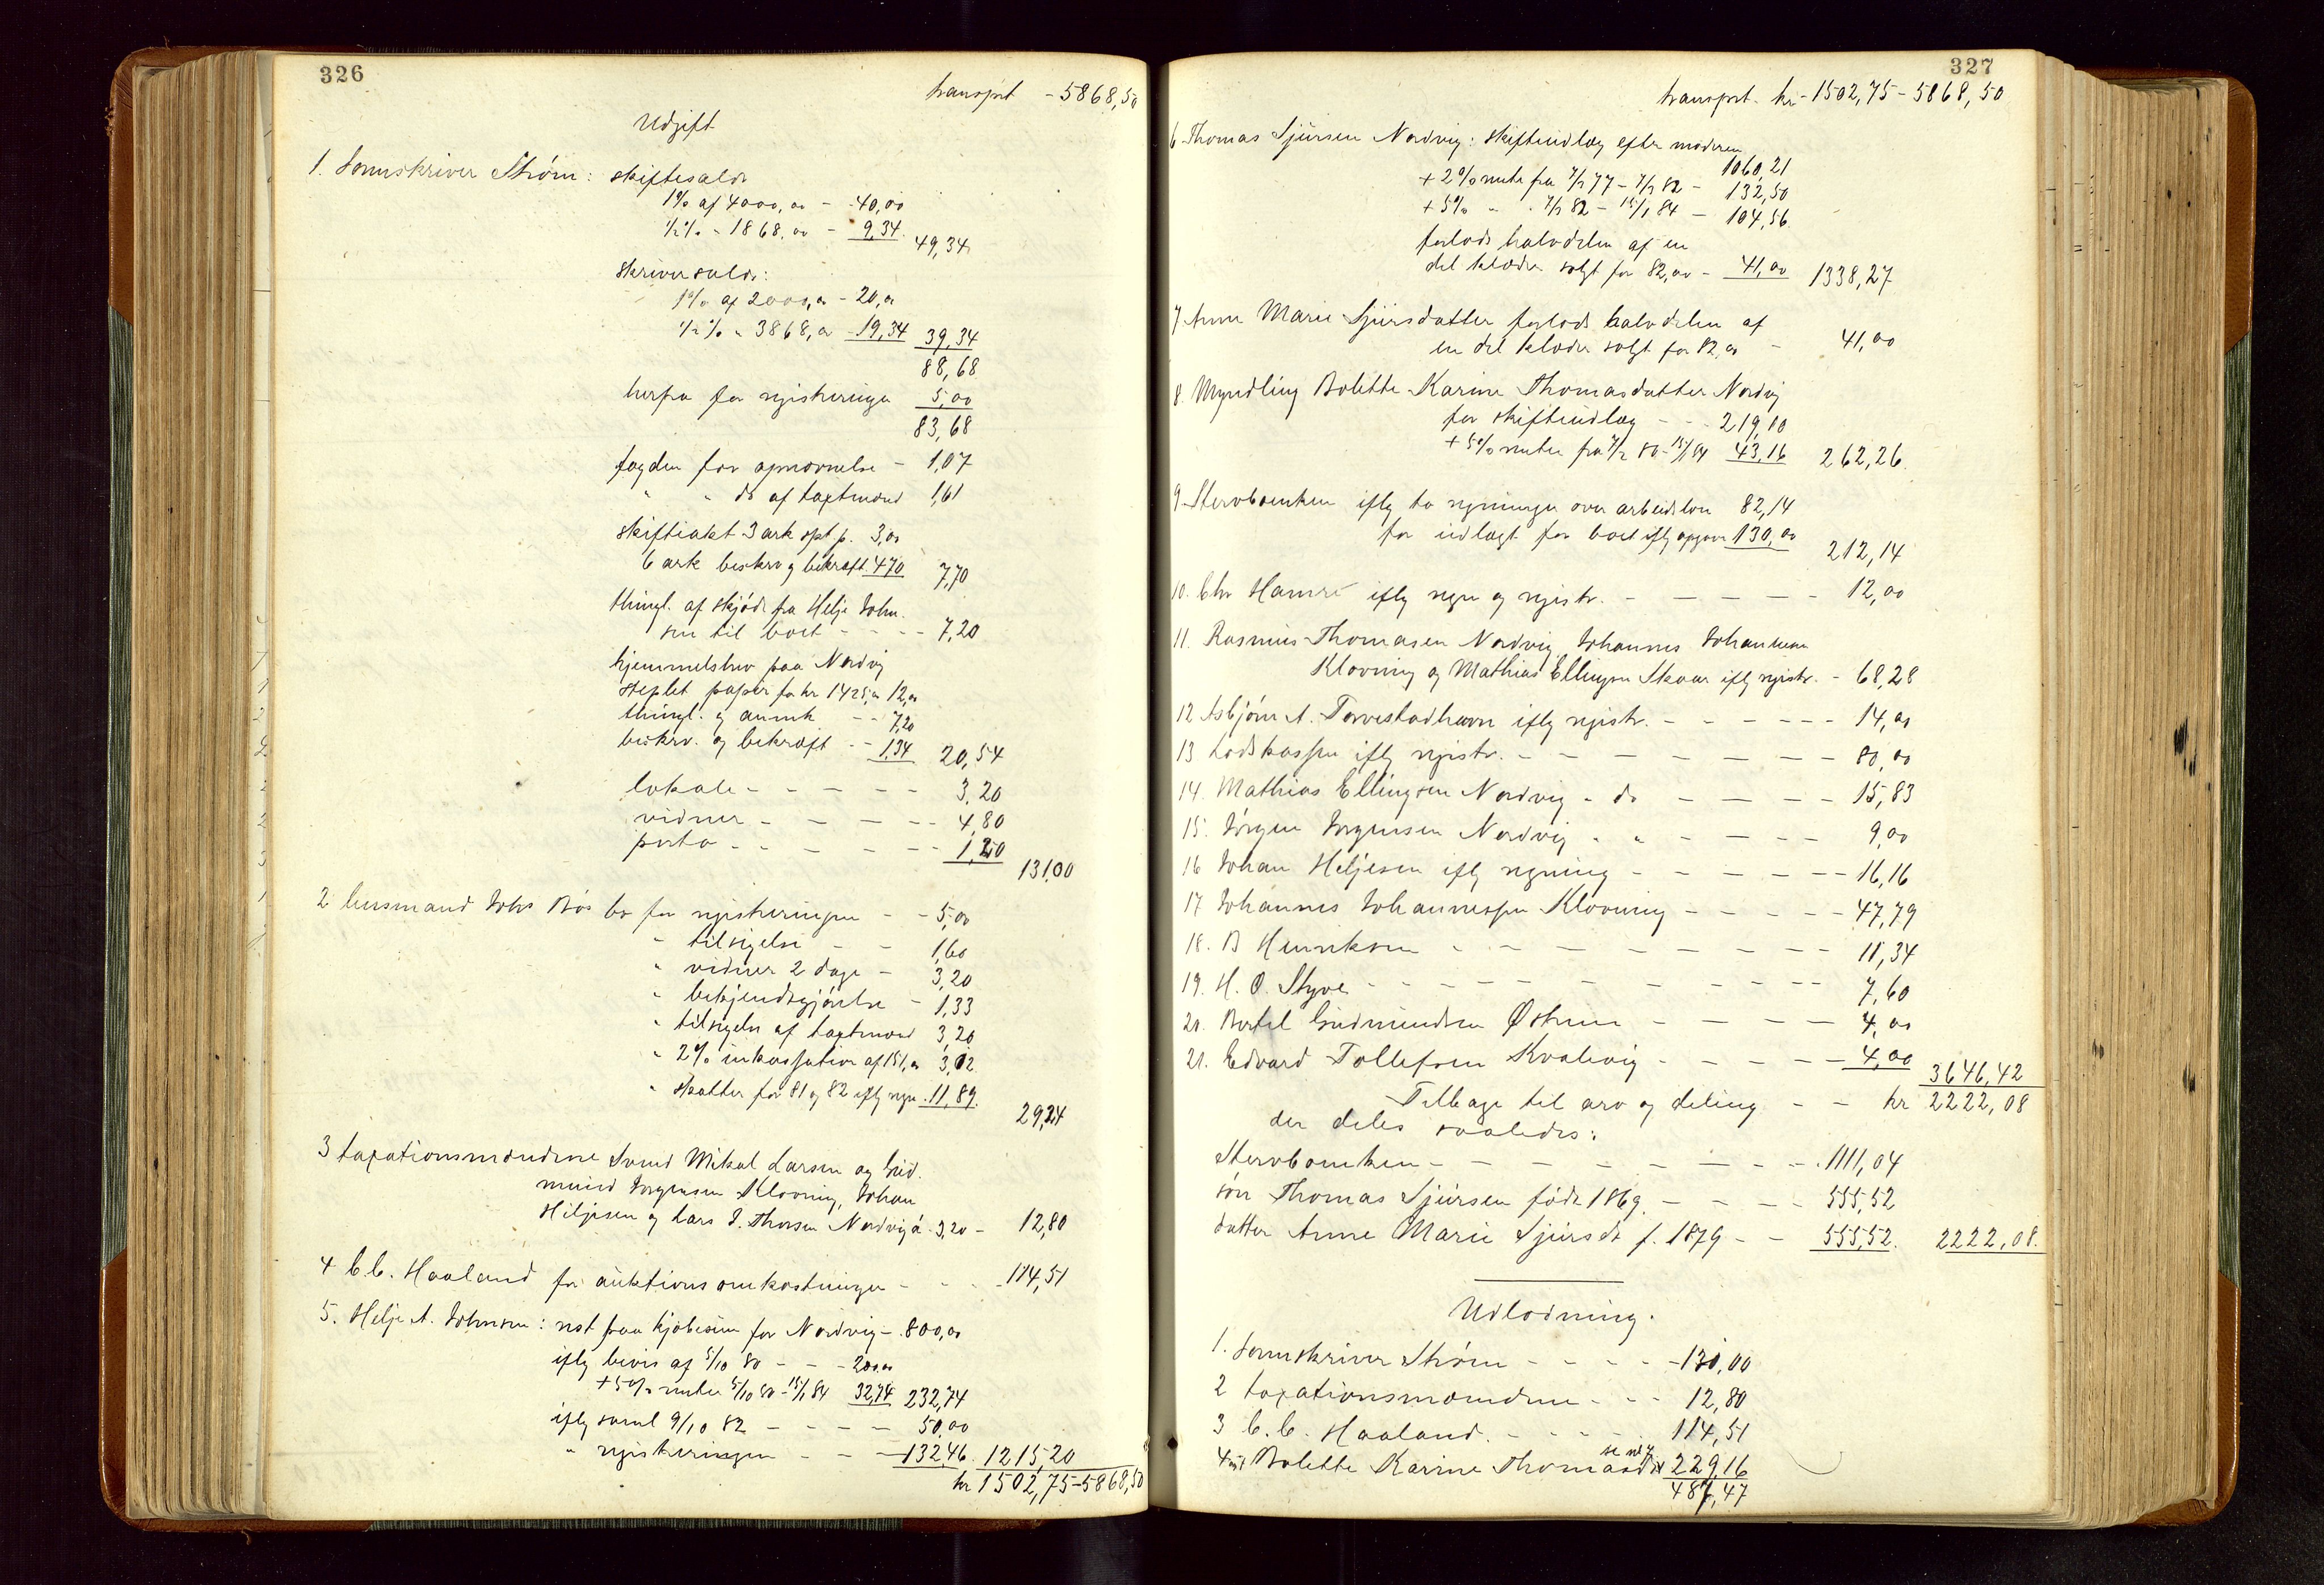 326
transport - 5868,50
Udgift
1. Sorenskriver Strøm: skiftesalær
1% af 4000,00 - 40,00
½% - 1868,00 - 9,34 49,34
skriversalær:
1% af 2000,00 - 20,00
½% " 3868,00 - 19,34 39,34
88,68
herfra for registeringen 5,00
83,68
fogden for opnævnelse - 1,07
" " do af taxtmænd 1,61
skifteakt 3 ark opt p. 3,00
6 ark beskrv og bekræft. 4,70 7,70
thingl. af skjøde fra Helje John.
sen til boet - - - - 7,20
hjemmelsbrev paa Nordvig
steplet papir for kr 1425,00 12,00
thingl. og anmrk - - 7,20
beskrv. og bekræft - - 1,34 20,54
lokale - - - - - 3,20
vidner - - - - - 4,80
porto - - - - - 1,20
131,00
2 lensmand Johs Bøs bo for registeringen - - 5,00
" tilsigelse - - 1,60
" vidner 2 dage - 3,20
" bekjendtgjørelse - 1,33
" tilsigelse af taxtmænd 3,20
" 2% inkassation af 151,00 3,02
" skatter for 81 og 82 iflg regn. 11,89
29,24
3 taxationsmændene Svend Mikal Larsen og Gud.
mund Jørgensen Klovning, Johan
Heljesen og Lars J. Thorsen Nordvig á 3,20 - 12,80
4 C.C. Haaland for auktionsomkostninger - - - 114,51
5. Helje A. Johnsen: rest paa kjøbesum for Nordvig - 800,00
iflg bevis af 5/10 80 - - - 200,00
+ 5% renter 5/10 80 - 15/1 84 32,74 232,74
iflg saml 9/10 82 - - - - 50,00
" registeringen - - - 132,46 1215,20
kr 1502,75 - 5868,50
327
transport. kr - 1502,75 - 5868,50
6 Thomas Sjursen Nordvig: skifteudlæg efter moderen
1060,21
+ 2% rente fra 7/7 77 - 7/7 82 - 132,50
+ 5% " " 7/7 82 - 15/1 84 - 104,56
forlods halvdelen af en
del klæder solgt for 82,00 - 41,00 1338,27
7 Anne Marie Sjursdatter forlods halvdelen af
en del klæder solgt for 82,00 - 41,00
8. Myndling Bolette Karine Thomasdatter Nordvig
for skifteudlæg - - - 219,10
+ 5% renter fra 7/2 80 - 15/1 84 43,16 262,26
9 Stervboenken iflg to regninger over arbeidsløn 82,14
for udlagt for boet iflg opgave 130,00
212,14
10. Chr Hamre iflg regn og registr. - - - - - 12,00
11. Rasmus Thomasen Nordvig, Johannes Johannesen
Klovning og Mathias Ellingsen Skaar iflg registr. - 68,28
12 Asbjørn A. Torvestadhavn iflg registr. - - - - - - 14,00
13 Lodskassen iflg registr. - - - - - - - 80,00
14. Mathias Ellingsen Nordvig - do - - - - 15,83
15. Jørgen Jørgensen Nordvig " " - - - - 9,00
16 Johan Heljesen iflg regning - - - - - - 16,16
17 Johannes Johannessen Klovning - - - - - 47,79
18. B Henriksen - - - - - - - - 11,34
19. H. O. Styve - - - - - - - - - - 7,60
20. Bertel Gudmundsen Østhus - - - - 4,00
21. Edvard Tollefsen Kvalevig - - - - - 4,00
3646,42
Tilbage til arv og deling - - kr 2222,08
der deles saaledes:
Stervboenken - - - - - - - - - 1111,04
søn Thomas Sjursen født 1869 - - - - 555,52
datter Anne Marie Sjursdr f. 1879 - - 555,52. 2222,08.
Udlodning.
1. Sorenskriver Strøm - - - - - 130,00
2 taxationsmændene - - - 12,80
3 C.C. Haaland. - - - - 114,51
4 Bolette Karine Thomasdr 229,16
487,47